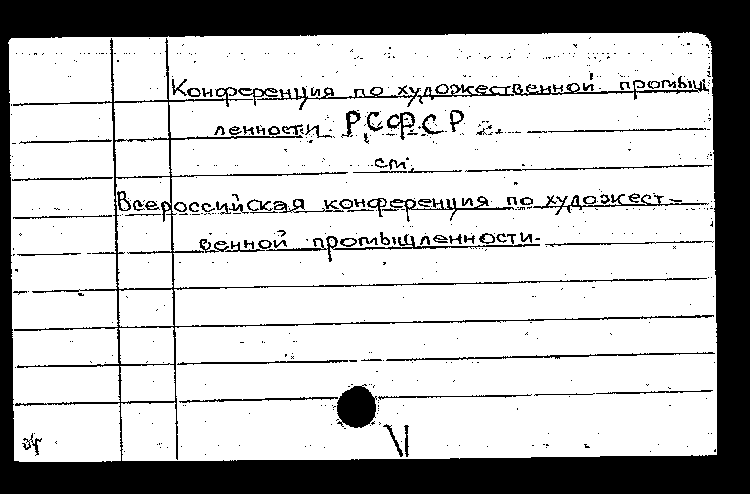 Конференция по художественной промыш
ленности РСФСР
см.
Всероссийская конференция по художест-
венной промышленности.